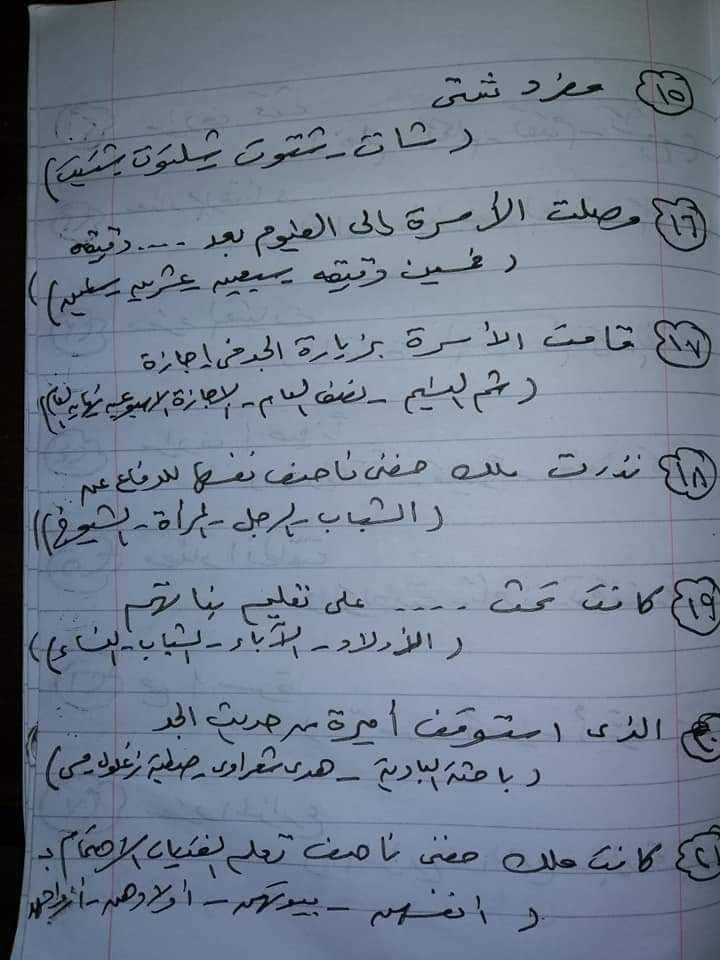 ١٥ مفرد شتى
( شات - شتوت شلتوت شتيت )
١٦ وصلت الأسرة إلى الفيوم بعد .... دقيقه
( خمسين دقيقه سبعين عشرين ستين )
١٧ قامت الأسرة بزيارة الجد فى إجازة
( شم النسيم - نصف العام - الاجازة الاسبوعيه نهاية العام )
١٨ نذرت ملك حفنى ناصف نفسها للدفاع عن
( الشباب - الرجل - المرأة - الشيوخ )
١٩ كانت تحث .... على تعليم بناتهم
( الأولاد - الآباء - الشباب - النساء )
٢٠ الذى استوقف أميرة من حديث الجد
( باحثة البادية - هدى شعراوى - صفية زغلول - مى )
٢١ كانت ملك حفنى ناصف تعلم الفتيات الاهتمام بـ
( انفسهن - بيوتهن - أولادهن - أزواجهن